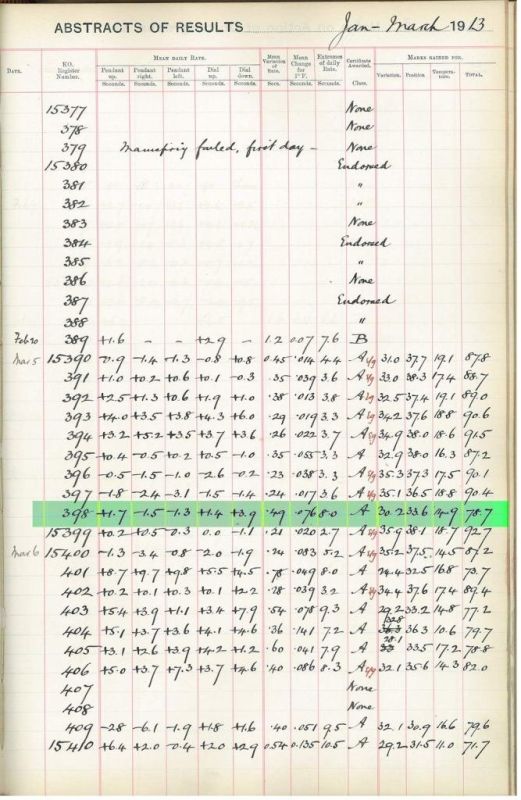 ABSTRACTS OF RESULTS Jan - March 1913
MEAN DAILY RATE. MARKS GAINED FOR.
DATE. KO. Register Number. Pendant up. Pendant right. Pendant left. Dial up. Dial down. Mean Variation of Rate. Mean Change for 1° F. Extremes of daily Rate. Certificate Awarded. Variation. Position. Tempera-ture. TOTAL.
Seconds. Seconds. Seconds. Seconds. Seconds. Secs. Seconds. Seconds. Class.
15377 None
378 None
379 failed, first day - None
15380 Endorsed
381 "
382 "
383 None
384 Endorsed
385 "
386 None
387 Endorsed
388 "
Feb 20 389 +1.6 - - +2.9 - 1.2 0.07 7.6 B
Mar 5 15390 -0.9 -1.4 -1.3 -0.8 +0.8 0.45 .014 4.4 A 31.0 37.7 19.1 87.8
391 +1.0 +0.2 +0.6 +0.1 -0.3 .35 .039 3.6 A 33.0 38.3 17.4 88.7
392 +2.5 +1.3 +0.6 +1.9 +1.0 .38 .013 3.8 A 32.5 37.4 19.1 89.0
393 +4.0 +3.5 +3.8 +4.3 +6.0 .29 .019 3.3 A 34.2 37.6 18.8 90.6
394 +3.2 +5.2 +3.5 +3.7 +3.6 .26 .022 3.7 A 34.9 38.0 18.6 91.5
395 +0.4 -0.5 +0.2 +0.5 -1.0 .35 .055 3.3 A 32.9 38.0 16.3 87.2
396 -0.5 -1.5 -1.0 -2.6 -0.2 .23 .038 3.3 A 35.3 37.3 17.5 90.1
397 -1.8 -2.4 -3.1 -1.5 -1.4 .24 .017 3.6 A 35.1 36.5 18.8 90.4
398 +1.7 -1.5 -1.3 +1.4 +3.9 .49 .076 8.0 A 30.2 33.6 14.9 78.7
15399 +0.2 +0.5 -0.3 0.0 -1.1 .21 .020 2.7 A 35.9 38.1 18.7 92.7
Mar 6 15400 -1.3 -3.4 -0.8 -2.0 -1.9 .24 .083 5.2 A 35.2 37.5 14.5 87.2
401 +8.7 +9.7 +9.8 +5.5 +4.5 .78 .049 8.0 A 24.4 32.5 16.8 73.7
402 +0.2 +0.1 +0.3 +0.1 +2.2 .28 .039 3.2 A 34.4 37.6 17.4 89.4
403 +5.4 +3.9 +1.1 +3.4 +7.9 .54 .078 9.3 A 29.2 33.2 14.8 77.2
404 +5.1 +3.7 +3.6 +4.1 +4.6 .36 .141 7.2 A 32.8 36.3 10.6 79.7
405 +3.1 +2.6 +3.9 +4.2 +1.2 .60 .041 7.9 A 28.1 33.5 17.2 78.8
406 +5.0 +3.7 +7.3 +3.7 +4.6 .40 .086 8.3 A 32.1 35.6 14.3 82.0
407 None
408 None
409 -2.8 -6.1 -1.9 +1.8 +1.6 .40 .051 9.5 A 32.1 30.9 16.6 79.6
15410 +6.4 +2.0 -0.4 +2.0 +2.9 0.54 0.135 10.5 A 29.2 31.5 11.0 71.7